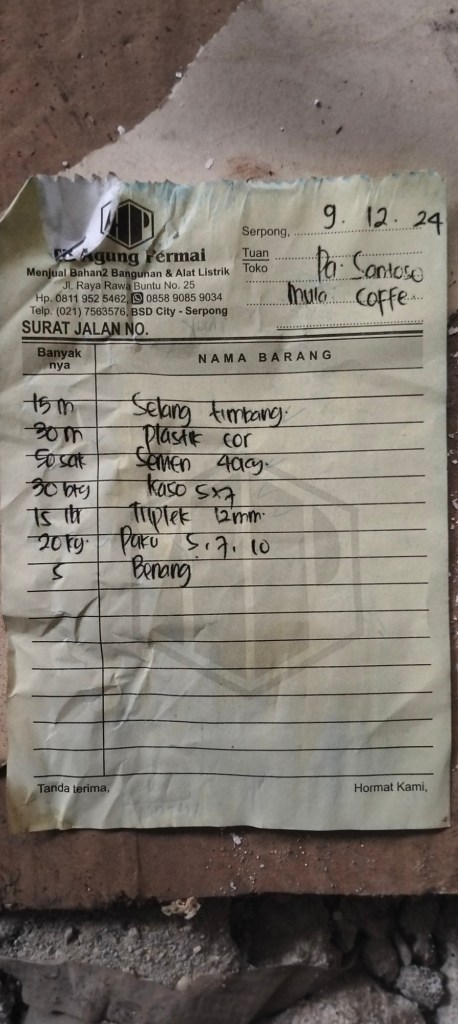 Agung Permai
Menjual Bahan2 Bangunan & Alat Listrik
Jl. Raya Rawa Buntu No. 25
Hp. 0811 952 5462, 0858 9085 9034
Telp. (021) 7563576, BSD City - Serpong
SURAT JALAN NO.
Serpong, 9. 12. 24
Tuan
Toko
Pa. Santoso
Mula COFFe
Banyak nya NAMA BARANG
15 m Selang timbang.
30 m Plastik cor
50 sak Semen
30 btg Kaso 5x7
15 lbr Triplek 12mm.
20 kg. Paku 5, 7, 10
5 Benang
Tanda terima, Hormat Kami,